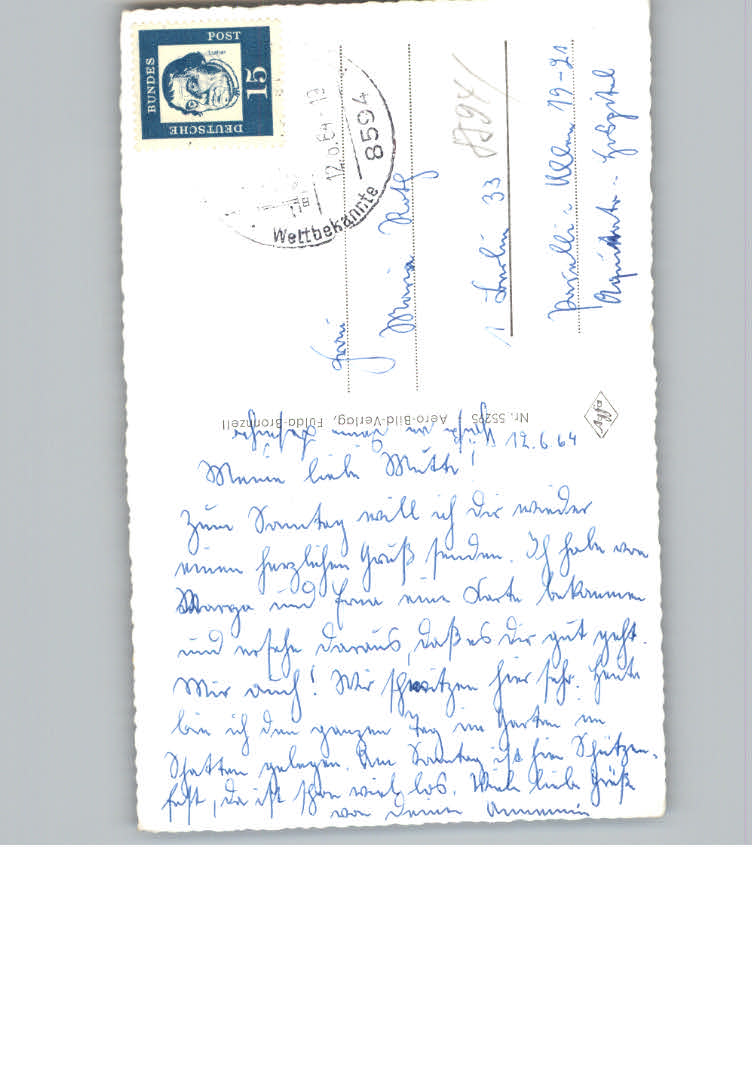 12.6.64
Meine liebe Mutti!
Zum Sonntag will ich Dir wieder
einen herzlichen Gruß senden. Ich habe von
Marga und Erna eine Karte bekommen
und ersehe daraus, daß es Dir gut geht.
Mir auch! Wir schwitzen hier sehr. Heute
bin ich den ganzen Tag im Garten im
Schatten gelegen. Am Sonntag ist hier Schützen-
fest, da ist schon viel los. Viele liebe Grüße
von Deiner Annemie
Nr. 55295 Aero-Bild-Verlag, Fulda-Bronnzell
Agfa
DEUTSCHE
BUNDES
POST
15
Luther
12.6.64-18
8594
Weltbekannte
Frau
Maria Roth
1 Berlin 33
8594
Pacelli-Allee 19-21
Hospital